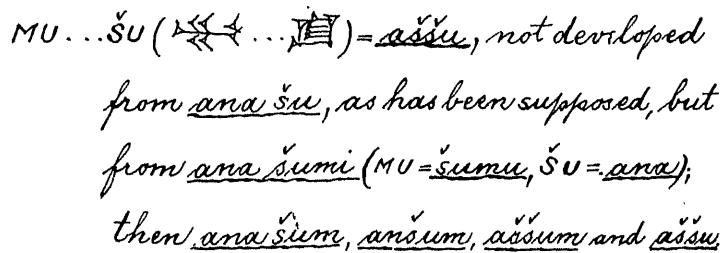 MU...ŠU (𒈬...𒋗) = aššu, not developed
from ana šu, as has been supposed, but
from ana šumi (MU = šumu, ŠU = ana);
then ana šum, anšum, aššum and aššu